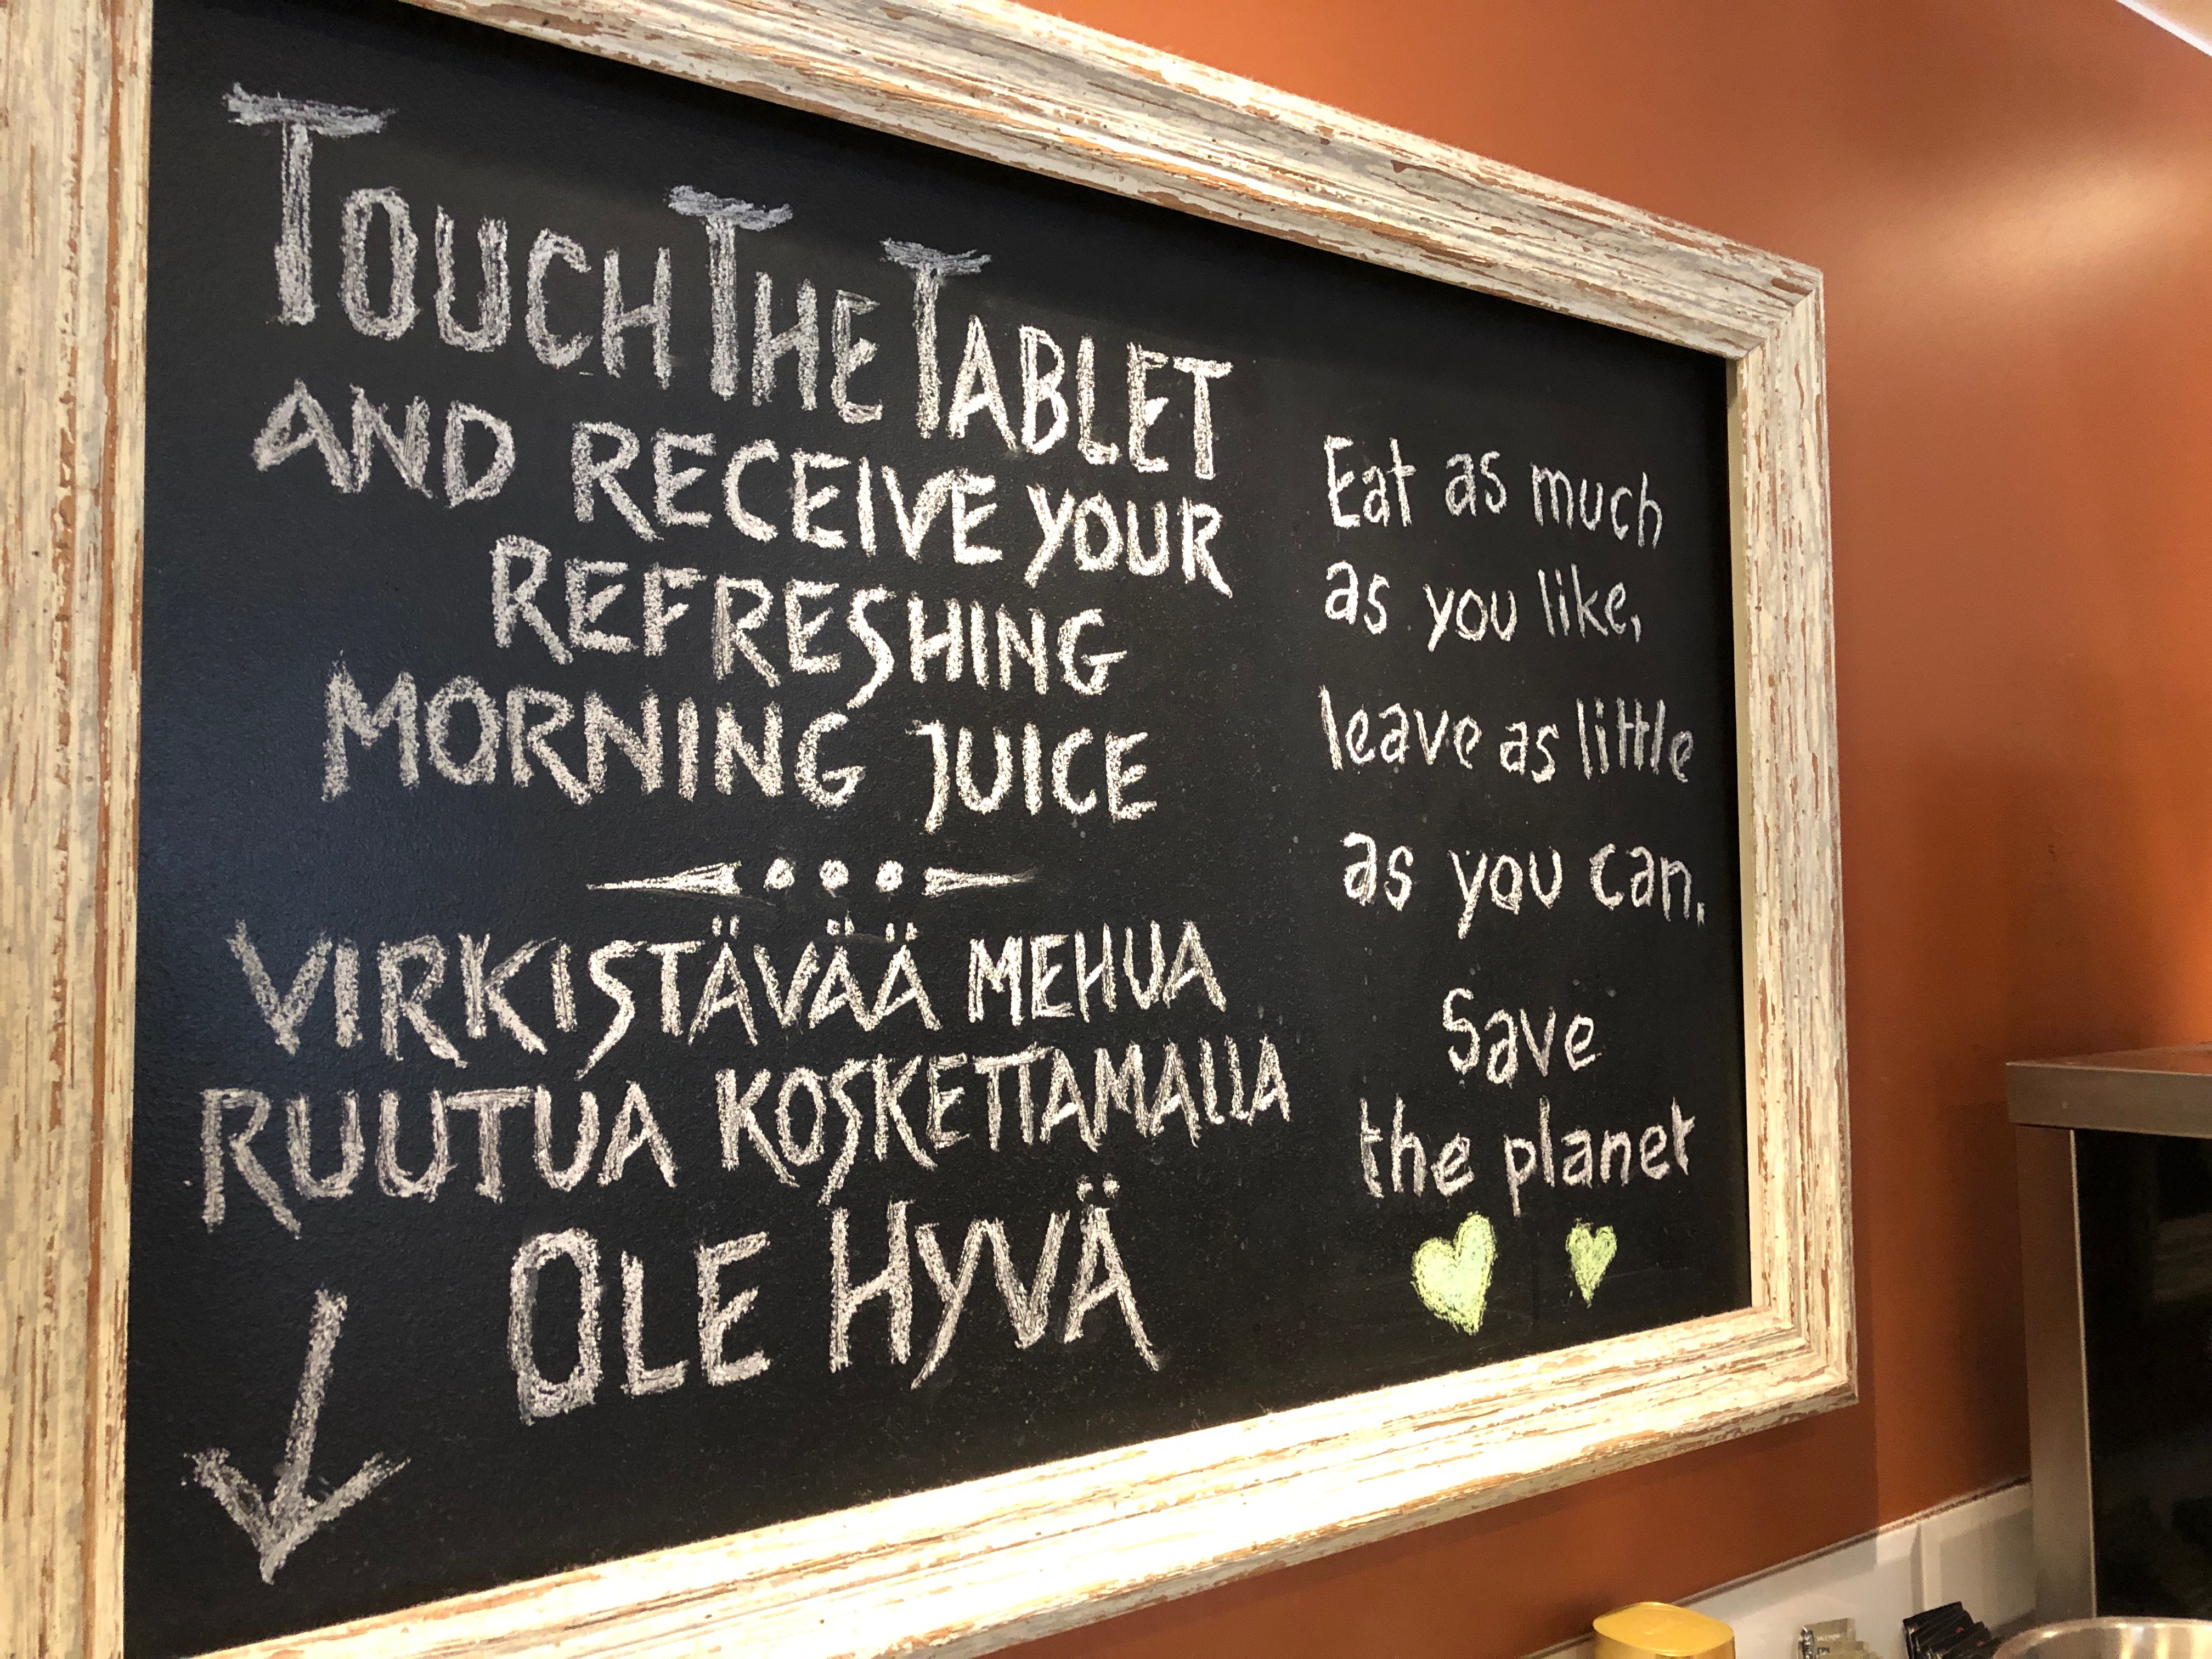 TOUCH THE TABLET
AND RECEIVE YOUR
REFRESHING
MORNING JUICE
VIRKISTÄVÄÄ MEHUA
RUUTUA KOSKETTAMALLA
OLE HYVÄ
Eat as much
as you like,
leave as little
as you can.
Save
the planet